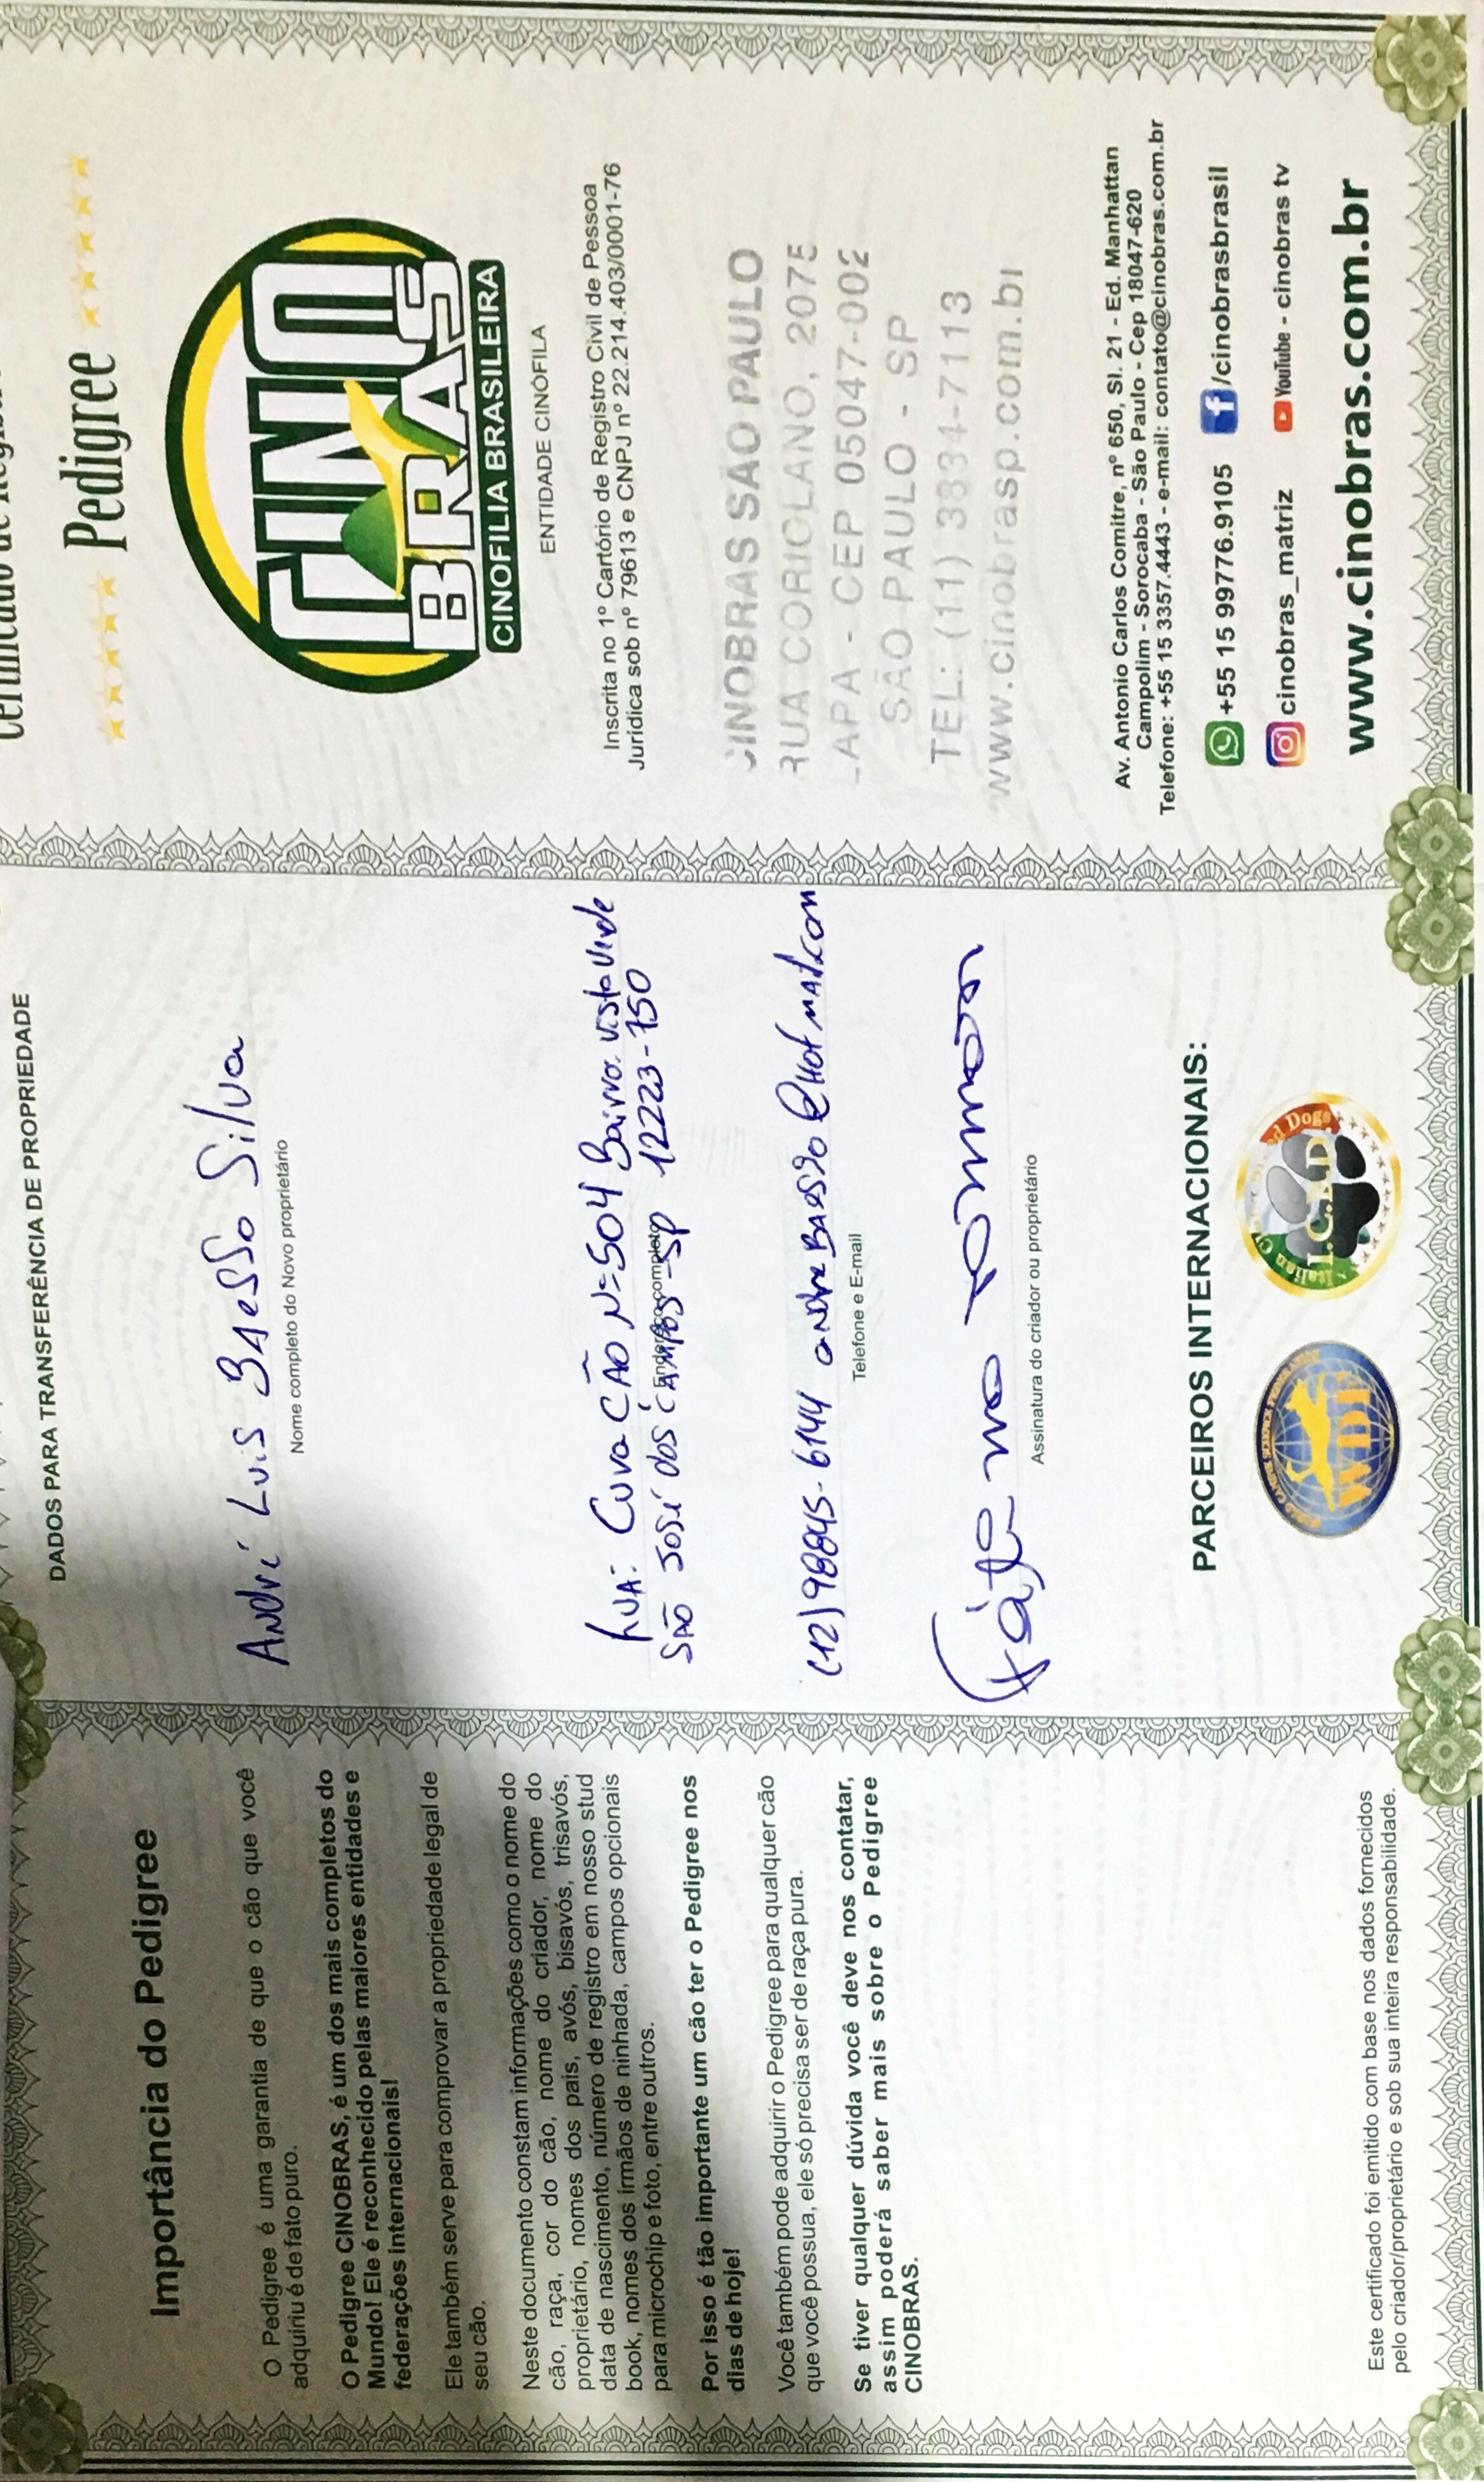 Importância do Pedigree
O Pedigree é uma garantia de que o cão que você
adquiriu é de fato puro.
O Pedigree CINOBRAS, é um dos mais completos do
Mundo! Ele é reconhecido pelas maiores entidades e
federações internacionais!
Ele também serve para comprovar a propriedade legal de
seu cão.
Neste documento constam informações como o nome do
cão, raça, cor do cão, nome do criador, nome do
proprietário, nomes dos pais, avós, bisavós, trisavós,
data de nascimento, número de registro em nosso stud
book, nomes dos irmãos de ninhada, campos opcionais
para microchip e foto, entre outros.
Por isso é tão importante um cão ter o Pedigree nos
dias de hoje!
Você também pode adquirir o Pedigree para qualquer cão
que você possua, ele só precisa ser de raça pura.
Se tiver qualquer dúvida você deve nos contatar,
assim poderá saber mais sobre o Pedigree
CINOBRAS.
Este certificado foi emitido com base nos dados fornecidos
pelo criador/proprietário e sob sua inteira responsabilidade.
DADOS PARA TRANSFERÊNCIA DE PROPRIEDADE
André Luis Baesso Silva
Nome completo do Novo proprietário
Rua: CuvaCÃO N=504 Bairro: Vista Verde
Endereço completo
SÃO José dos CAMPOS-SP 12223-750
(12)98845-6144 andreBaesso@Hotmail.com
Telefone e E-mail
Assinatura do criador ou proprietário
PARCEIROS INTERNACIONAIS:
WDF
I.C.B.D
Certificado de
Pedigree
CINO
BRAS
CINOFILIA BRASILEIRA
ENTIDADE CINÓFILA
Inscrita no 1º Cartório de Registro Civil de Pessoa
Jurídica sob nº 79613 e CNPJ nº 22.214.403/0001-76
CINOBRAS SÃO PAULO
RUA CORIOLANO, 2075
LAPA - CEP 05047-002
SÃO PAULO - SP
TEL: (11) 3834-7113
www.cinobrasp.com.br
Av. Antonio Carlos Comitre, nº 650, Sl. 21 - Ed. Manhattan
Campolim - Sorocaba - São Paulo - Cep 18047-620
Telefone: +55 15 3357.4443 - e-mail: contato@cinobras.com.br
+55 15 99776.9105 /cinobrasbrasil
cinobras_matriz YouTube - cinobras tv
www.cinobras.com.br